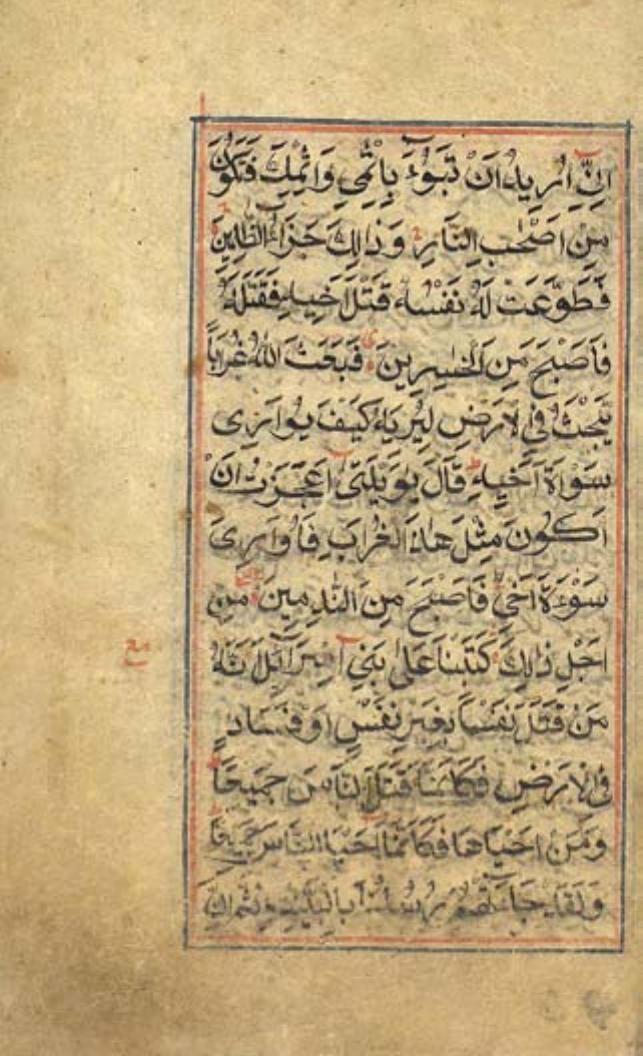 اِنِّي اُرِيدُ اَنْ تَبُوءَ بِاِثْمِي وَاِثْمِكَ فَتَكُونَ
مِنْ اَصْحٰبِ النَّارِ وَذَالِكَ جَزَاءُ الظَّالِمِينَ
فَطَوَّعَتْ لَهُ نَفْسُهُ قَتْلَ اَخِيهِ فَقَتَلَهُ
فَاَصْبَحَ مِنَ الْخٰسِرِينَ فَبَعَثَ اللهُ غُرَاباً
يَبْحَثُ فِي الْاَرْضِ لِيُرِيَهُ كَيْفَ يُوَارِى
سَوْاَةَ اَخِيهِ قَالَ يٰوَيْلَتٰى اَعَجَزْتُ اَنْ
اَكُونَ مِثْلَ هٰذَا الْغُرَابِ فَاُوَارِىَ
سَوْءَةَ اَخِي فَاَصْبَحَ مِنَ النّٰدِمِينَ مِنْ
اَجْلِ ذَالِكَ كَتَبْنَا عَلٰى بَنِي اِسْرَائِلَ اَنَّهُ
مَنْ قَتَلَ نَفْسًا بِغَيْرِ نَفْسٍ اَوْ فَسَادٍ
فِي الْاَرْضِ فَكَاَنَّمَا قَتَلَ النَّاسَ جَمِيعًا
وَمَنْ اَحْيَاهَا فَكَاَنَّمَا اَحْيَا النَّاسَ جَمِيعًا
وَلَقَدْ جَاءَتْهُمْ رُسُلُنَا بِالْبَيِّنٰتِ ثُمَّ اِنَّ
مع